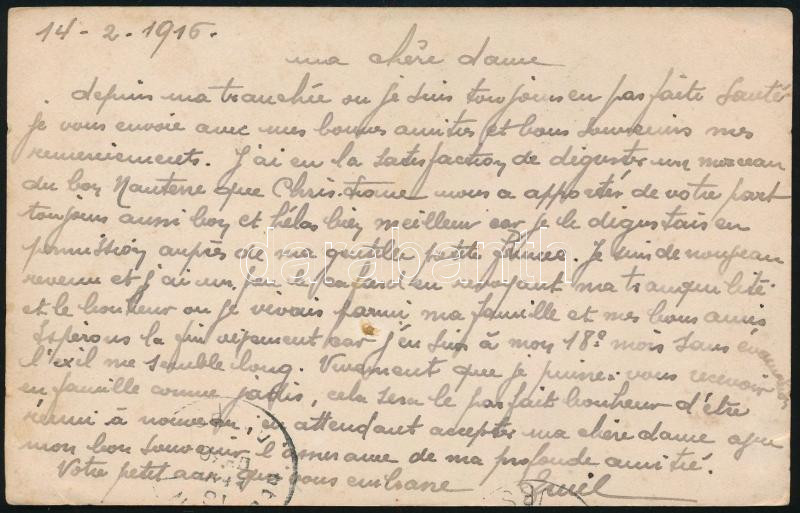 14-2-1916.
ma chère dame
depuis ma tranchée ou je suis toujours en parfaite santé
je vous envoie avec mes bonnes amitiés et bons souvenirs mes
remerciements. J'ai eu la satisfaction de déguster un morceau
du bon Nanterre que Christiane nous a apporté de votre part
toujours aussi bon et hélas bien meilleur car je le dégustais en
permission auprès de ma gentille petite femme. Je suis de nouveau
revenu et j'ai un peu le cafard en revoyant ma tranquilité
et le bonheur ou je vivais parmi ma famille et mes bons amis
Espérons la fin car j'en suis à mon 18e mois sans évacuation
l'exil me semble long. Vivement que je puisse vous recevoir
en famille comme jadis, cela sera le parfait bonheur d'être
réuni à nouveau, en attendant acceptez ma chère dame avec
mon bon souvenir l'assurance de ma profonde amitié.
Votre petit ami que vous embrasse Emil
darabanth